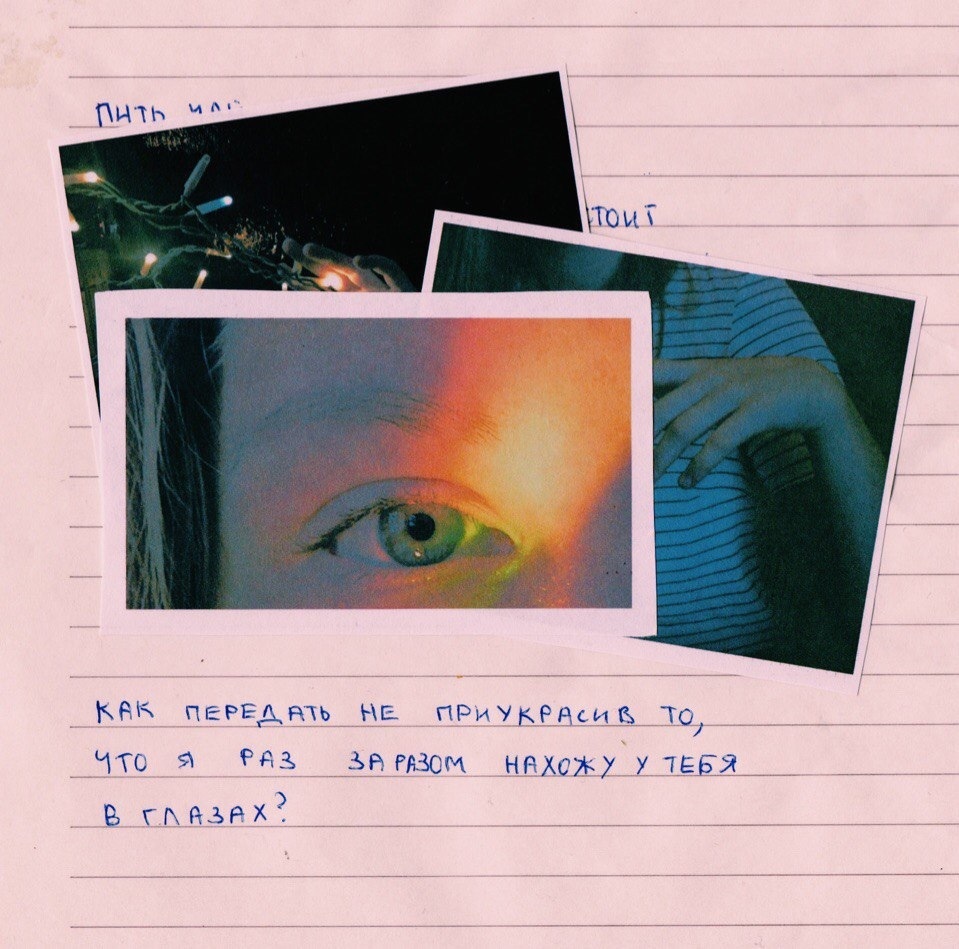 ПИТЬ
КАК ПЕРЕДАТЬ НЕ ПРИУКРАСИВ ТО,
ЧТО Я РАЗ ЗА РАЗОМ НАХОЖУ У ТЕБЯ
В ГЛАЗАХ?